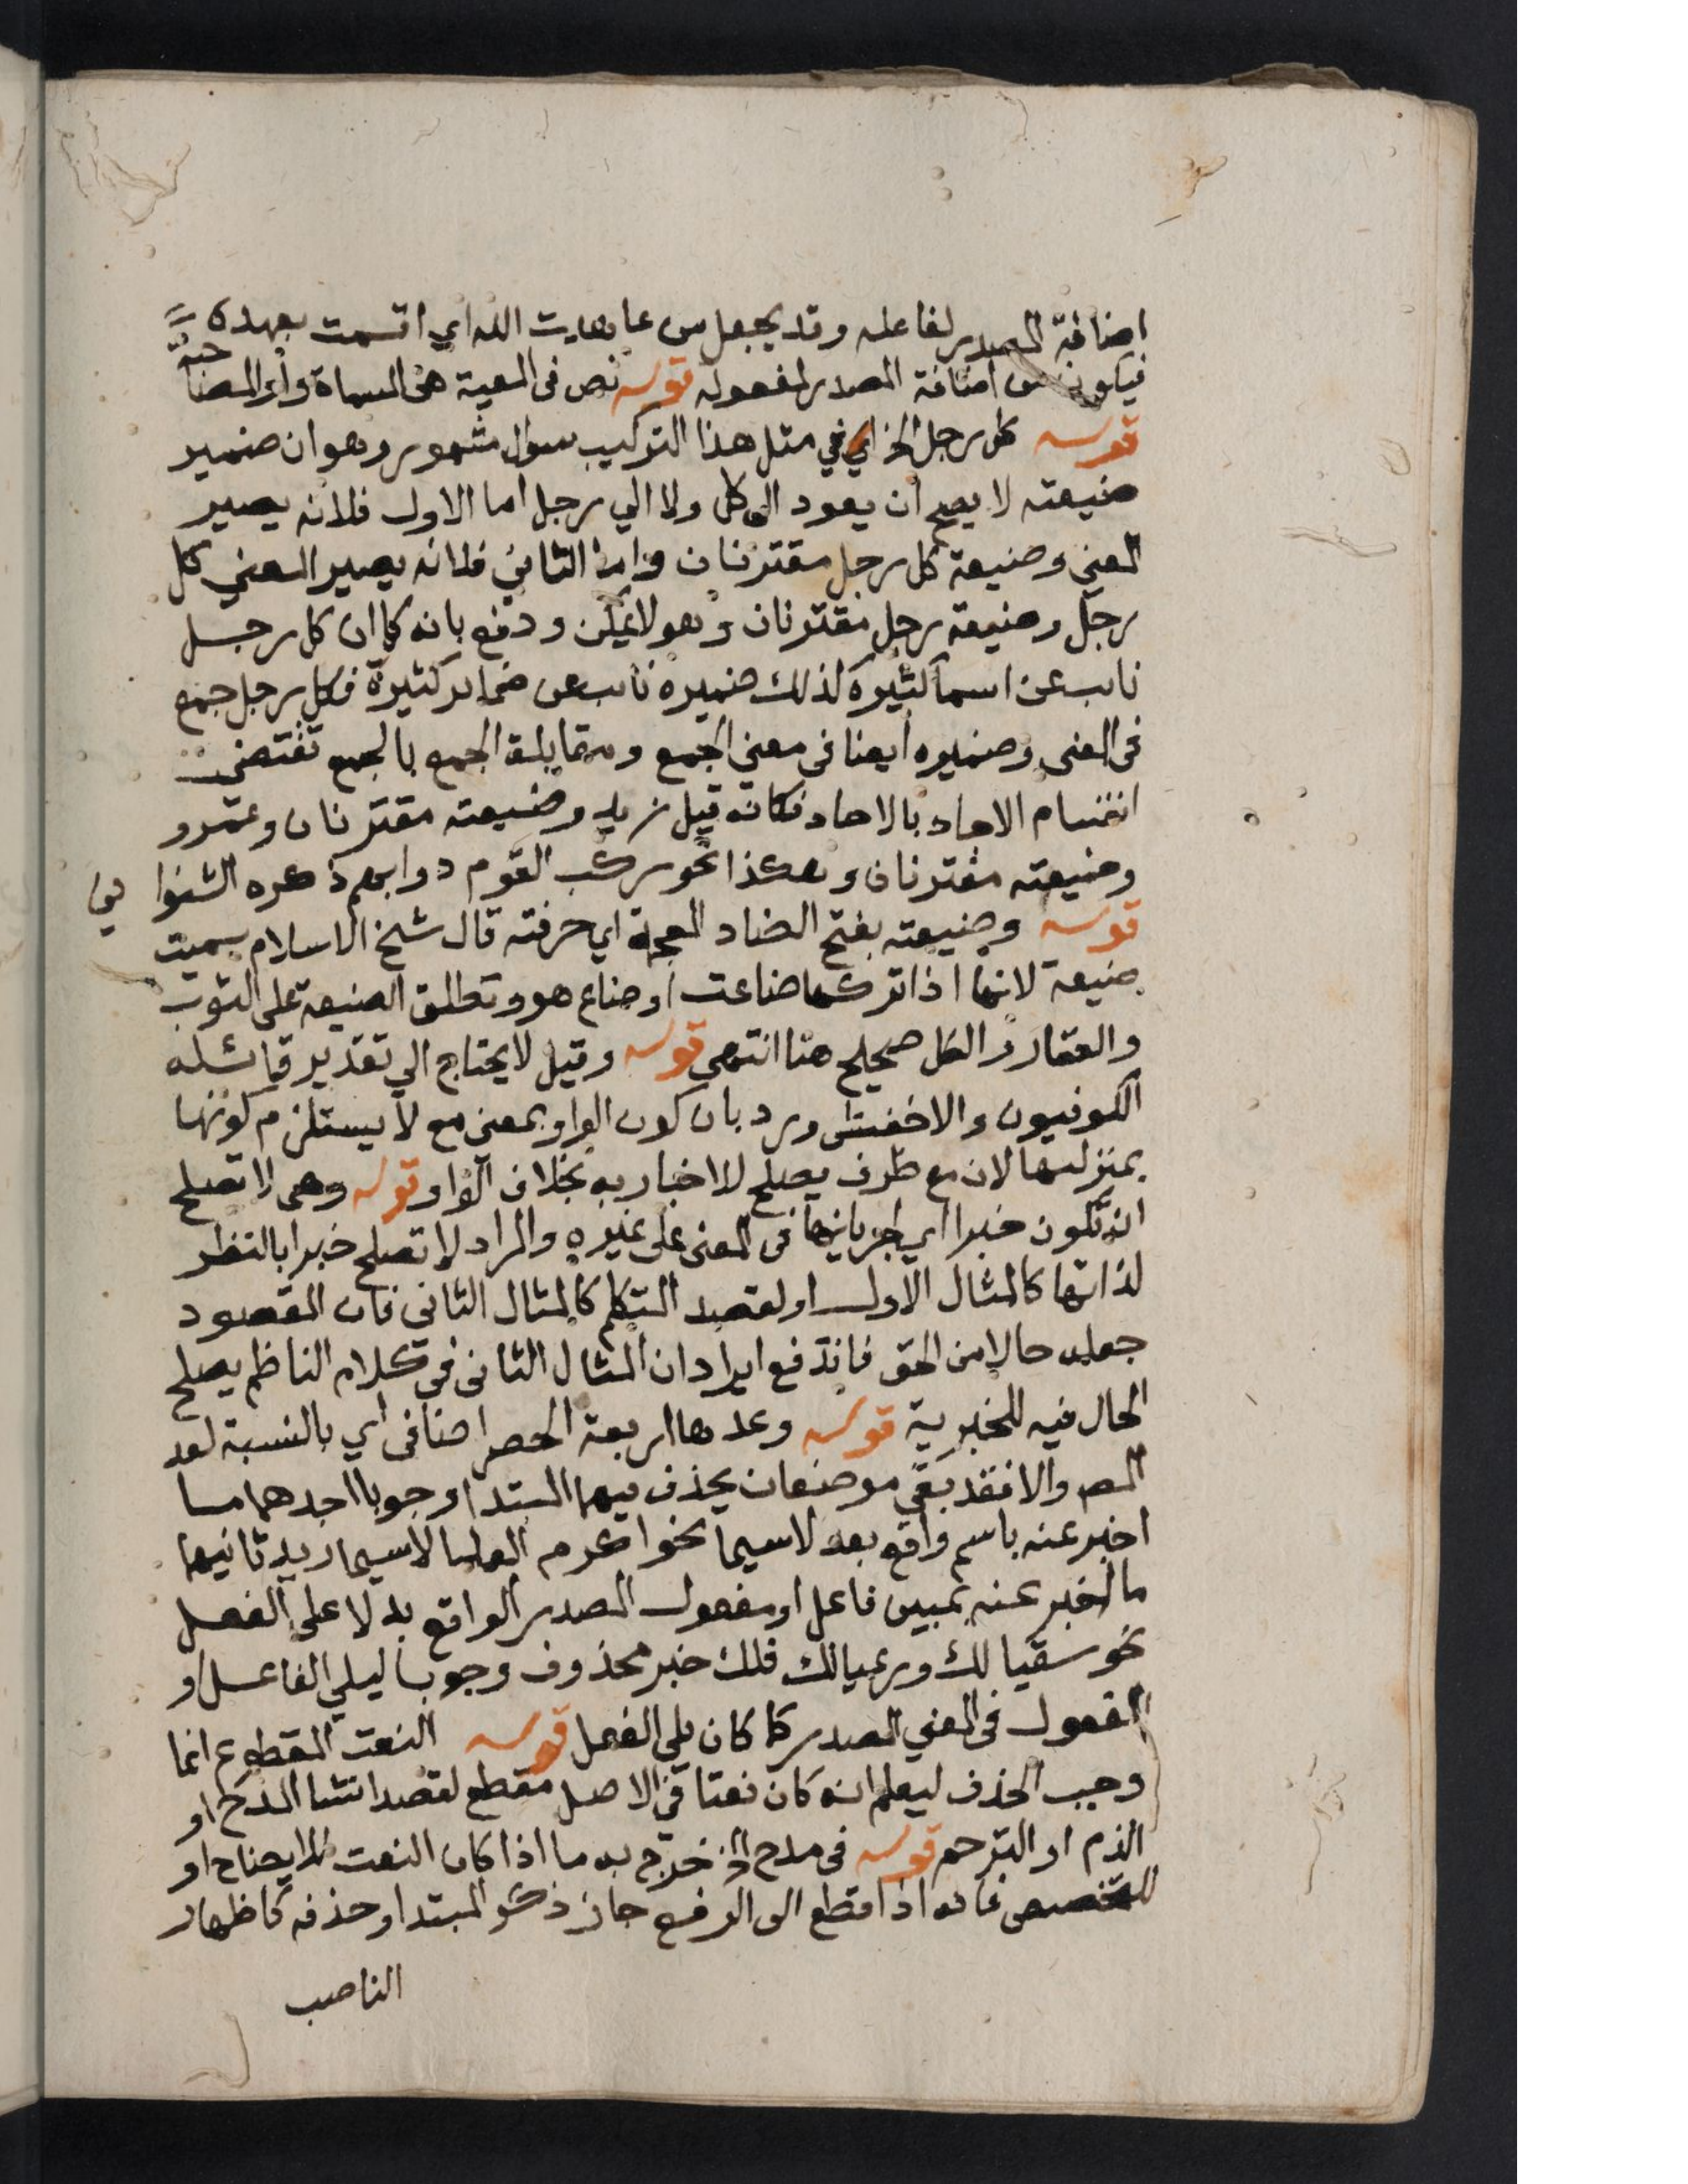 اضافة المصدر لفاعله وقد يجعل من عاهدت الله اي اقسمت بعهده
فيكون من اضافة المصدر لمفعوله قوله نص في المعية هي المسماة واو المصاحبة
قوله كل رجل الخ اي في مثل هذا التركيب سوال مشهور وهو ان ضمير
ضيعته لا يصح ان يعود الى كل ولا الي رجل اما الاول فلانه يصير
المعني وضيعة كل رجل مقترنان واما الثاني فلانه يصير المعني كل
رجل وضيعة رجل مقترنان وهو لا يمكن ودفع بانه كما ان كل رجل
نايب عن اسما كثيرة كذلك ضميره نايب عن ضماير كثيرة فكل رجل جمع
في المعنى وضميره ايضا في معني الجمع ومقابلة الجمع بالجمع تقتضي
انقسام الاحاد بالاحاد فكانه قيل زيد وضيعته مقترنان وعمرو
وضيعته مقترنان وهكذا نحو ركب القوم دوابهم ذكره الشنوا ني
قوله وضيعته بفتح الضاد المعجمة اي حرفته قال شيخ الاسلام سميت
ضيعة لانها اذا تركها ضاعت او ضاع هو وتطلق الضيعة على الثوب
والعقار والكل صحيح هنا انتهي قوله وقيل لا يحتاج الي تقدير قائله
الكوفيون والاخفش ورد بان كون الواو بمعنى مع لا يستلزم كونها
بمنزلتها لان مع ظرف يصلح للاخبار به بخلاف الواو قوله وهي لا تصلح
ان تكون خبرا اي لجريانها في المعنى على غيره والمراد لا تصلح خبرا بالنظر
لذاتها كالمثال الاول او لقصد المتكلم كالمثال الثاني فان المقصود
جعله حالا من الحق فاندفع ايراد ان المثال الثاني في كلام الناظم يصلح
الحال فيه للخبرية قوله وعدها اربعة الحصر اضافي اي بالنسبة لعد
المص والا فقد بقي موضعان يحذف فيهما المبتدا وجوبا احدهما ما
اخبر عنه باسم واقع بعد لاسيما نحو اكرم العلما لاسيما زيد ثانيهما
ما اخبر عنه بمبين فاعل او مفعول المصدر الواقع بدلا على الفعل
نحو سقيا لك ورعيا لك فلك خبر محذوف وجوبا ليلي الفاعل او
المفعول في المعني المصدر كما كان يلي الفعل قوله النعت المقطوع انما
وجب الحذف ليعلم انه كان نعتا في الاصل مقطع لقصد انشا المدح او
الذم او الترحم قوله في مدح الخ خرج به ما اذا كان النعت للايضاح او
للتخصيص فانه اذا قطع الى الرفع جاز ذكر المبتدا وحذفه كاظهار
الناصب